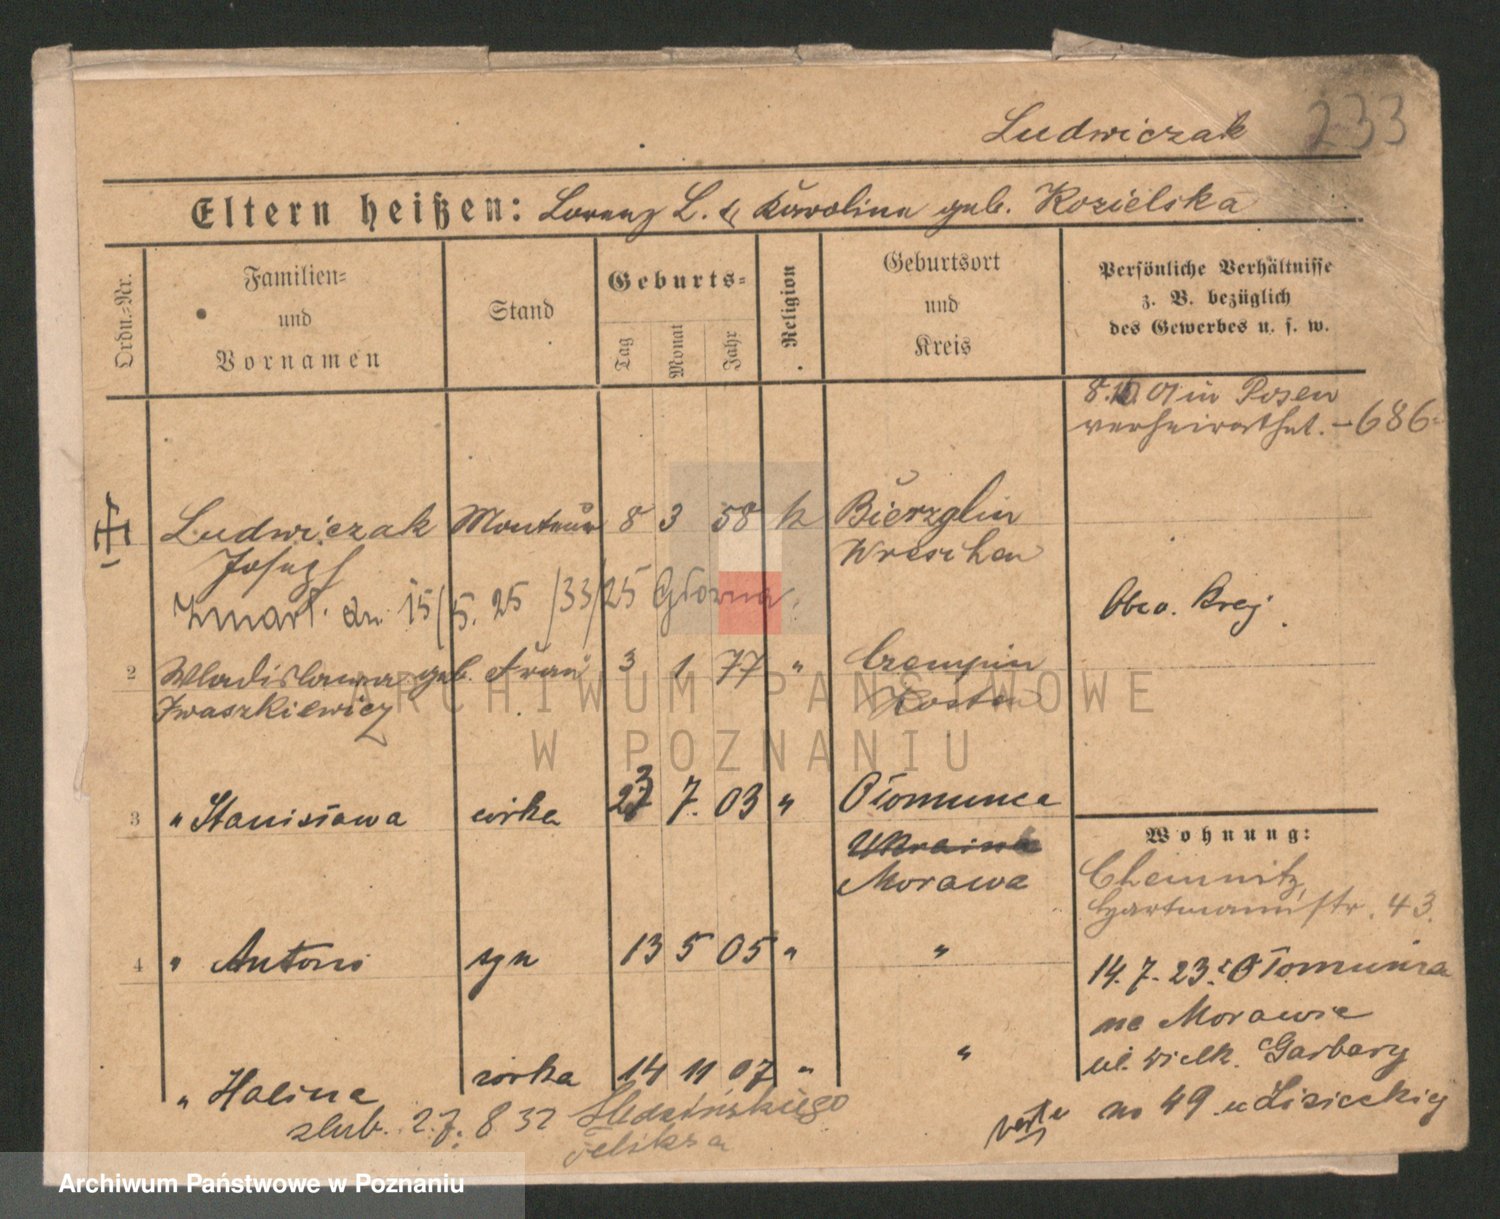 Ludwiczak 233
Eltern heißen: Lorenz L. & Karolina geb. Kozielska
Ordn.-Nr.
Familien-
und
Vornamen
Stand
Geburts-
Tag
Monat
Jahr
Religion
Geburtsort
und
Kreis
Persönliche Verhältnisse
z. B. bezüglich
des Gewerbes u. s. w.
8.10.01 in Posen
verheirathet. - 686
Ludwiczak Monteur 8 3 58 k Bierzglin
Joseph Wreschen
Zmarł dn. 15/5. 25 /33/25 Główna.
Obco. Kraj.
2 Wladislawa geb. Frau 3 1 77 " Czempin
Iwaszkiewicz Kosten
3 " Stanisława córka 23 7. 03 " Ołomunca
Ukraina
Morawa
Wohnung:
Chemnitz,
Hartmannstr. 43.
4 " Antoni syn 13 5 05 " "
14. 7. 23. z Ołomuńca
na Morawie
ul. Wielk. Garbary
no 49 u Lisieckiej
" Halina córka 14 11 07 " "
ślub. 27. 8 32
Feliksa
verte
ARCHIWUM PAŃSTWOWE
W POZNANIU
Archiwum Państwowe w Poznaniu